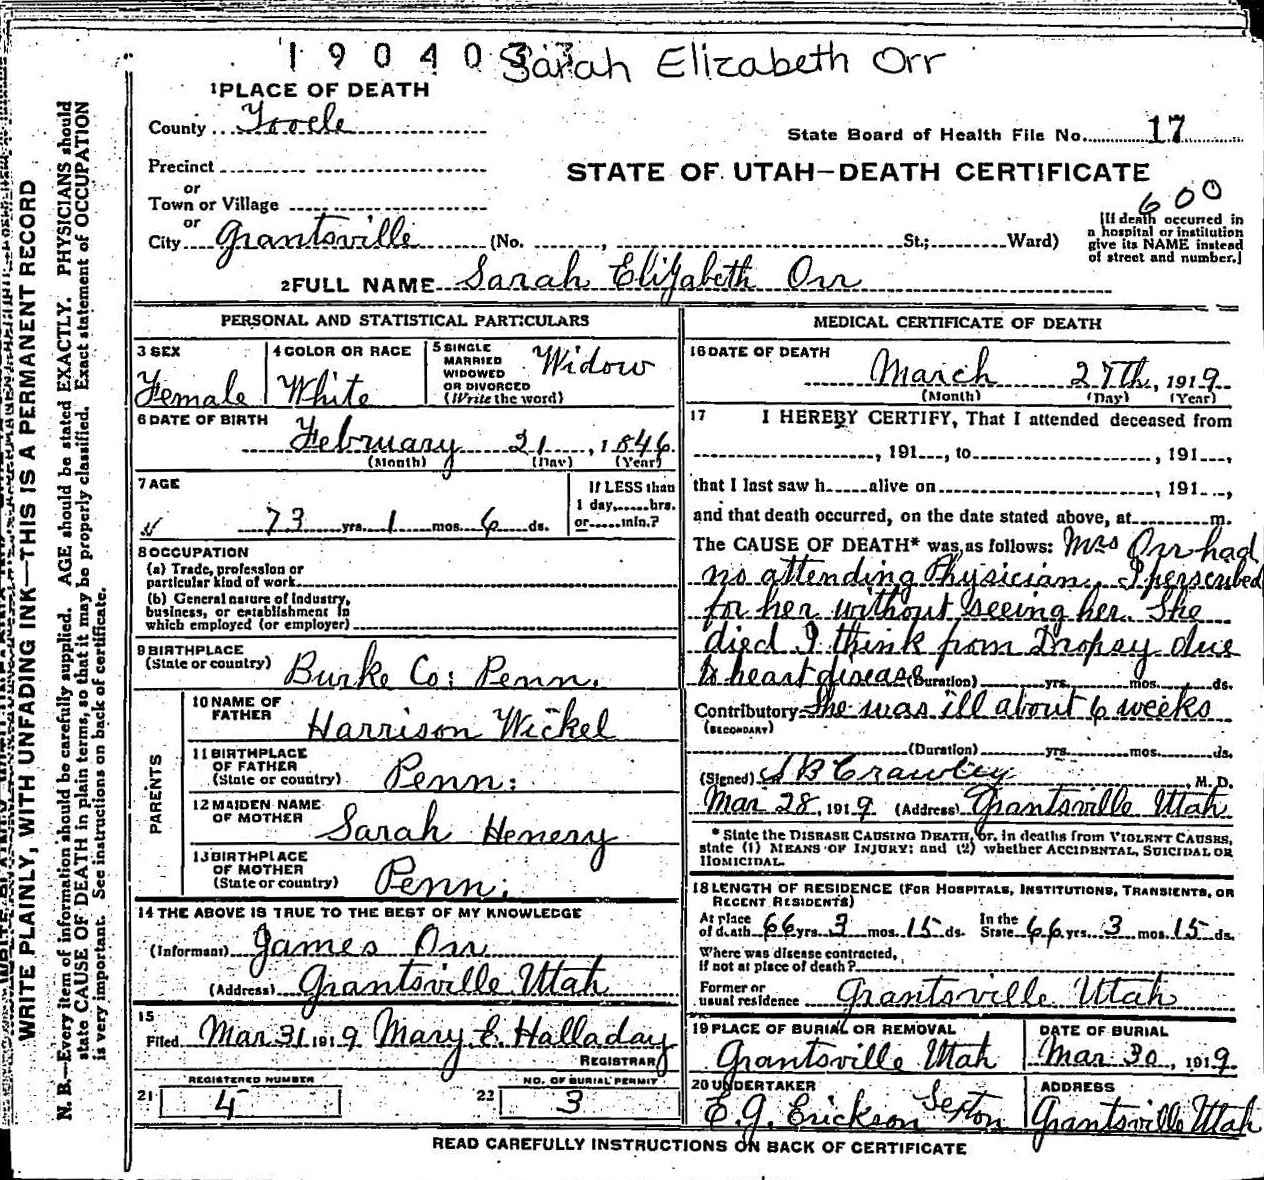 1904033 Sarah Elizabeth Orr
1 PLACE OF DEATH
County Tooele
State Board of Health File No. 17
Precinct
or
Town or Village
or
City Grantsville (No. , St.; Ward)
STATE OF UTAH—DEATH CERTIFICATE
600
[If death occurred in
a hospital or institution
give its NAME instead
of street and number.]
2 FULL NAME Sarah Elizabeth Orr
PERSONAL AND STATISTICAL PARTICULARS
3 SEX
Female
4 COLOR OR RACE
White
5 SINGLE
MARRIED
WIDOWED
OR DIVORCED
(Write the word)
Widow
6 DATE OF BIRTH
February 21, 1846
(Month) (Day) (Year)
7 AGE
73 yrs. 1 mos. 6 ds.
If LESS than
1 day, hrs.
or min.?
8 OCCUPATION
(a) Trade, profession or
particular kind of work
(b) General nature of Industry,
business, or establishment in
which employed (or employer)
9 BIRTHPLACE
(State or country) Burke Co: Penn.
PARENTS
10 NAME OF
FATHER Harrison Wickel
11 BIRTHPLACE
OF FATHER
(State or country) Penn:
12 MAIDEN NAME
OF MOTHER Sarah Henery
13 BIRTHPLACE
OF MOTHER
(State or country) Penn:
14 THE ABOVE IS TRUE TO THE BEST OF MY KNOWLEDGE
(Informant) James Orr
(Address) Grantsville Utah
15
Filed Mar 31 1919 Mary E. Halladay
REGISTRAR
REGISTERED NUMBER
21 4
NO. OF BURIAL PERMIT
22 3
MEDICAL CERTIFICATE OF DEATH
16 DATE OF DEATH
March 27th, 1919
(Month) (Day) (Year)
17 I HEREBY CERTIFY, That I attended deceased from
, 191 , to , 191 ,
that I last saw h alive on , 191 ,
and that death occurred, on the date stated above, at m.
The CAUSE OF DEATH* was as follows: Mrs Orr had
no attending Physician. I perscribed
for her without seeing her. She
died I think from Dropsy due
to heart disease (Duration) yrs. mos. ds.
Contributory She was ill about 6 weeks
(SECONDARY)
(Duration) yrs. mos. ds.
(Signed) J B Crawley, M. D.
Mar 28, 1919 (Address) Grantsville Utah
* State the DISEASE CAUSING DEATH, or, in deaths from VIOLENT CAUSES,
state (1) MEANS OF INJURY; and (2) whether ACCIDENTAL, SUICIDAL OR
HOMICIDAL.
18 LENGTH OF RESIDENCE (FOR HOSPITALS, INSTITUTIONS, TRANSIENTS, OR
RECENT RESIDENTS)
At place
of death 66 yrs. 3 mos. 15 ds.
In the
State 66 yrs. 3 mos. 15 ds.
Where was disease contracted,
if not at place of death?
Former or
usual residence Grantsville Utah
19 PLACE OF BURIAL OR REMOVAL
Grantsville Utah
DATE OF BURIAL
Mar 30, 1919
20 UNDERTAKER
E. G. Erickson Sexton
ADDRESS
Grantsville Utah
READ CAREFULLY INSTRUCTIONS ON BACK OF CERTIFICATE
WRITE PLAINLY, WITH UNFADING INK—THIS IS A PERMANENT RECORD
N. B.—Every item of information should be carefully supplied. AGE should be stated EXACTLY. PHYSICIANS should
state CAUSE OF DEATH in plain terms, so that it may be properly classified. Exact statement of OCCUPATION
is very important. See instructions on back of certificate.